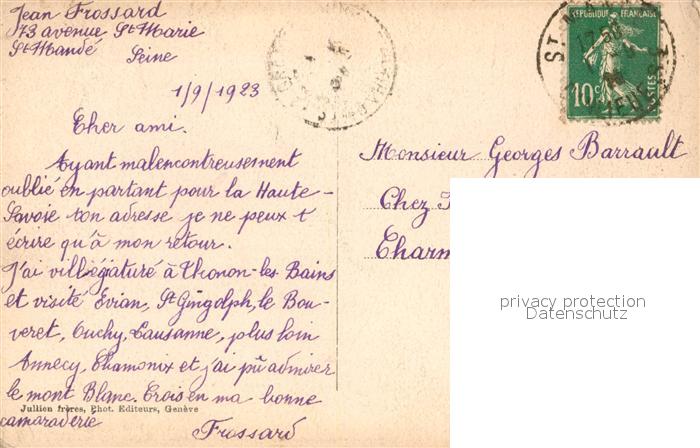 Jean Frossard
73 avenue Ste Marie
St Mandé
Seine
1/9/1923
Cher ami.
Ayant malencontreusement
oublié en partant pour la Haute-
Savoie ton adresse je ne peux t
écrire qu'à mon retour.
J'ai villégiaturé à Thonon-les Bains
et visité Evian, St Gingolph, le Bou-
veret, Ouchy, Lausanne, plus loin
Annecy, Chamonix et j'ai pû admirer
le mont Blanc. Crois en ma bonne
camaraderie
Frossard
Jullien frères, Phot. Editeurs, Genève
RÉPUBLIQUE FRANÇAISE
10c
POSTES
Monsieur Georges Barrault
Chez
Charm
privacy protection
Datenschutz